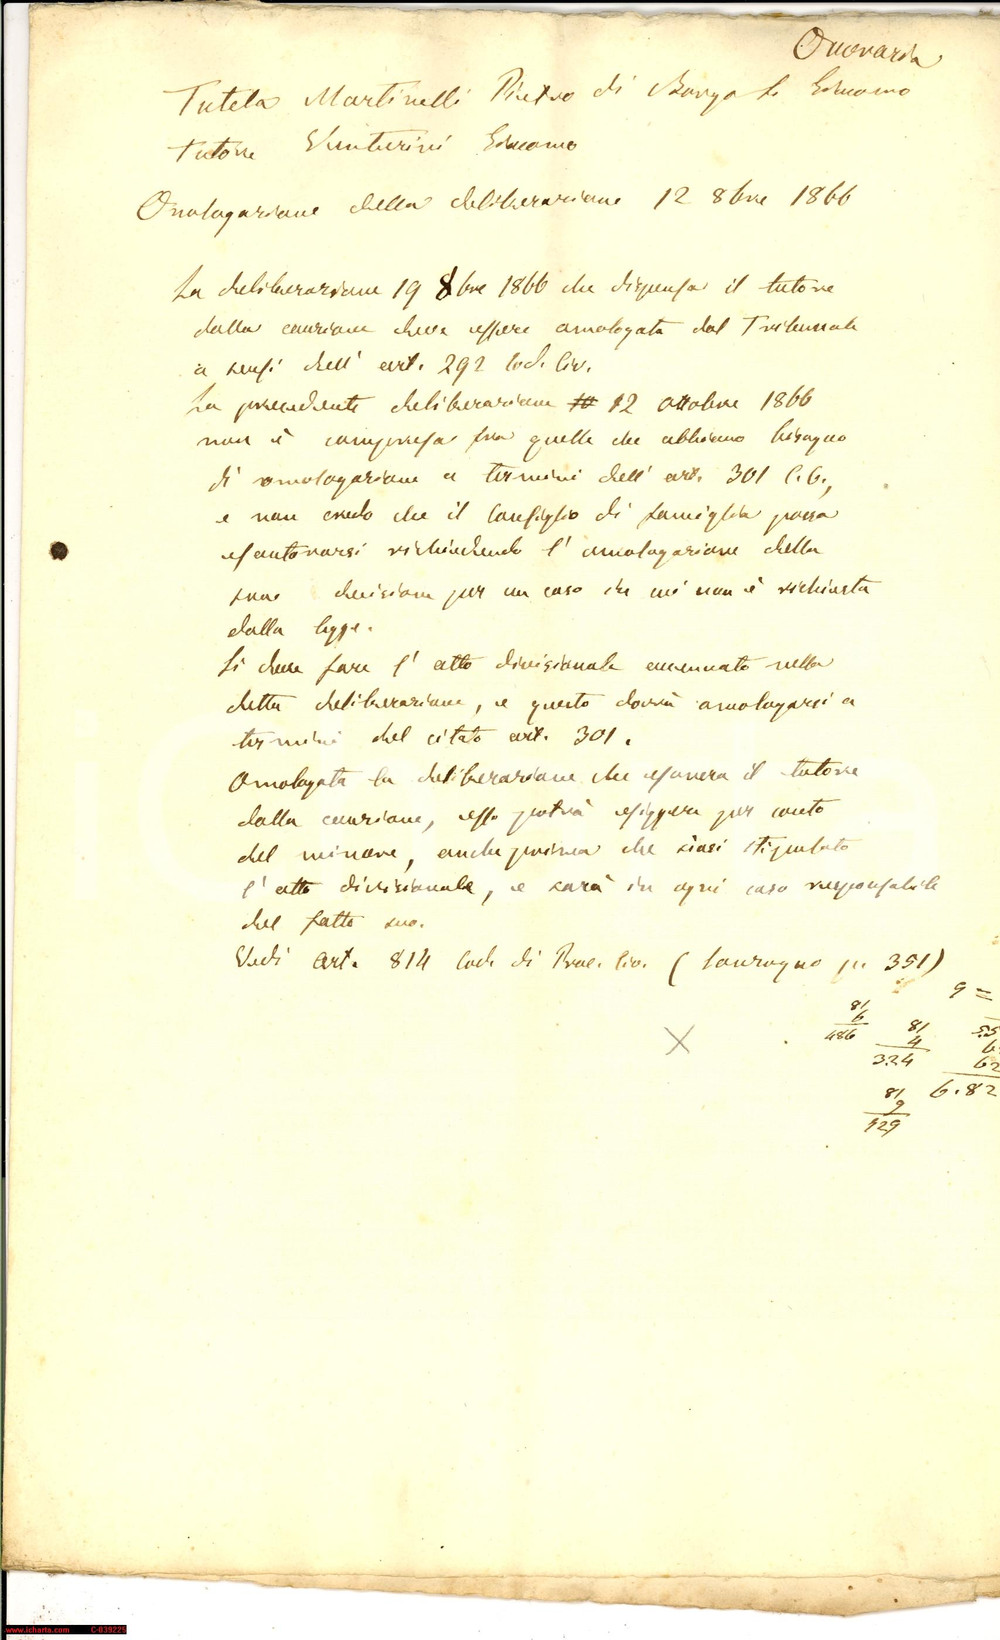 Onoraria
Tutela Martinelli Pietro di Borgo S. Giacomo
Tutore Venturini Giacomo
Omologazione della deliberazione 12 8bre 1866
La deliberazione 19 8bre 1866 che dispensa il tutore
dalla cauzione deve essere omologata dal Tribunale
a sensi dell' art. 292 Cod. Civ.
La precedente deliberazione 12 ottobre 1866
non è compresa fra quelle che abbiano bisogno
di omologazione a termini dell' art. 301 C.C.,
e non credo che il Consiglio di famiglia possa
esautorarsi richiedendo l' omologazione della
sua decisione per un caso in cui non è richiesta
dalla legge.
Si deve fare l' atto divisionale accennato nella
detta deliberazione, e questo dovrà omologarsi a
termini del citato art. 301.
Omologata la deliberazione che esonera il tutore
dalla cauzione, esso potrà esiggere per conto
del minore, anche prima che siasi stipulato
l' atto divisionale, e sarà in ogni caso responsabile
del fatto suo.
Vedi art. 814 Cod. di Proc. Civ. ( Sonzogno p. 351)
9 =
81
6
486
81
4
324
55
6
62
6.82
81
9
729
www.icharta.com C-039225